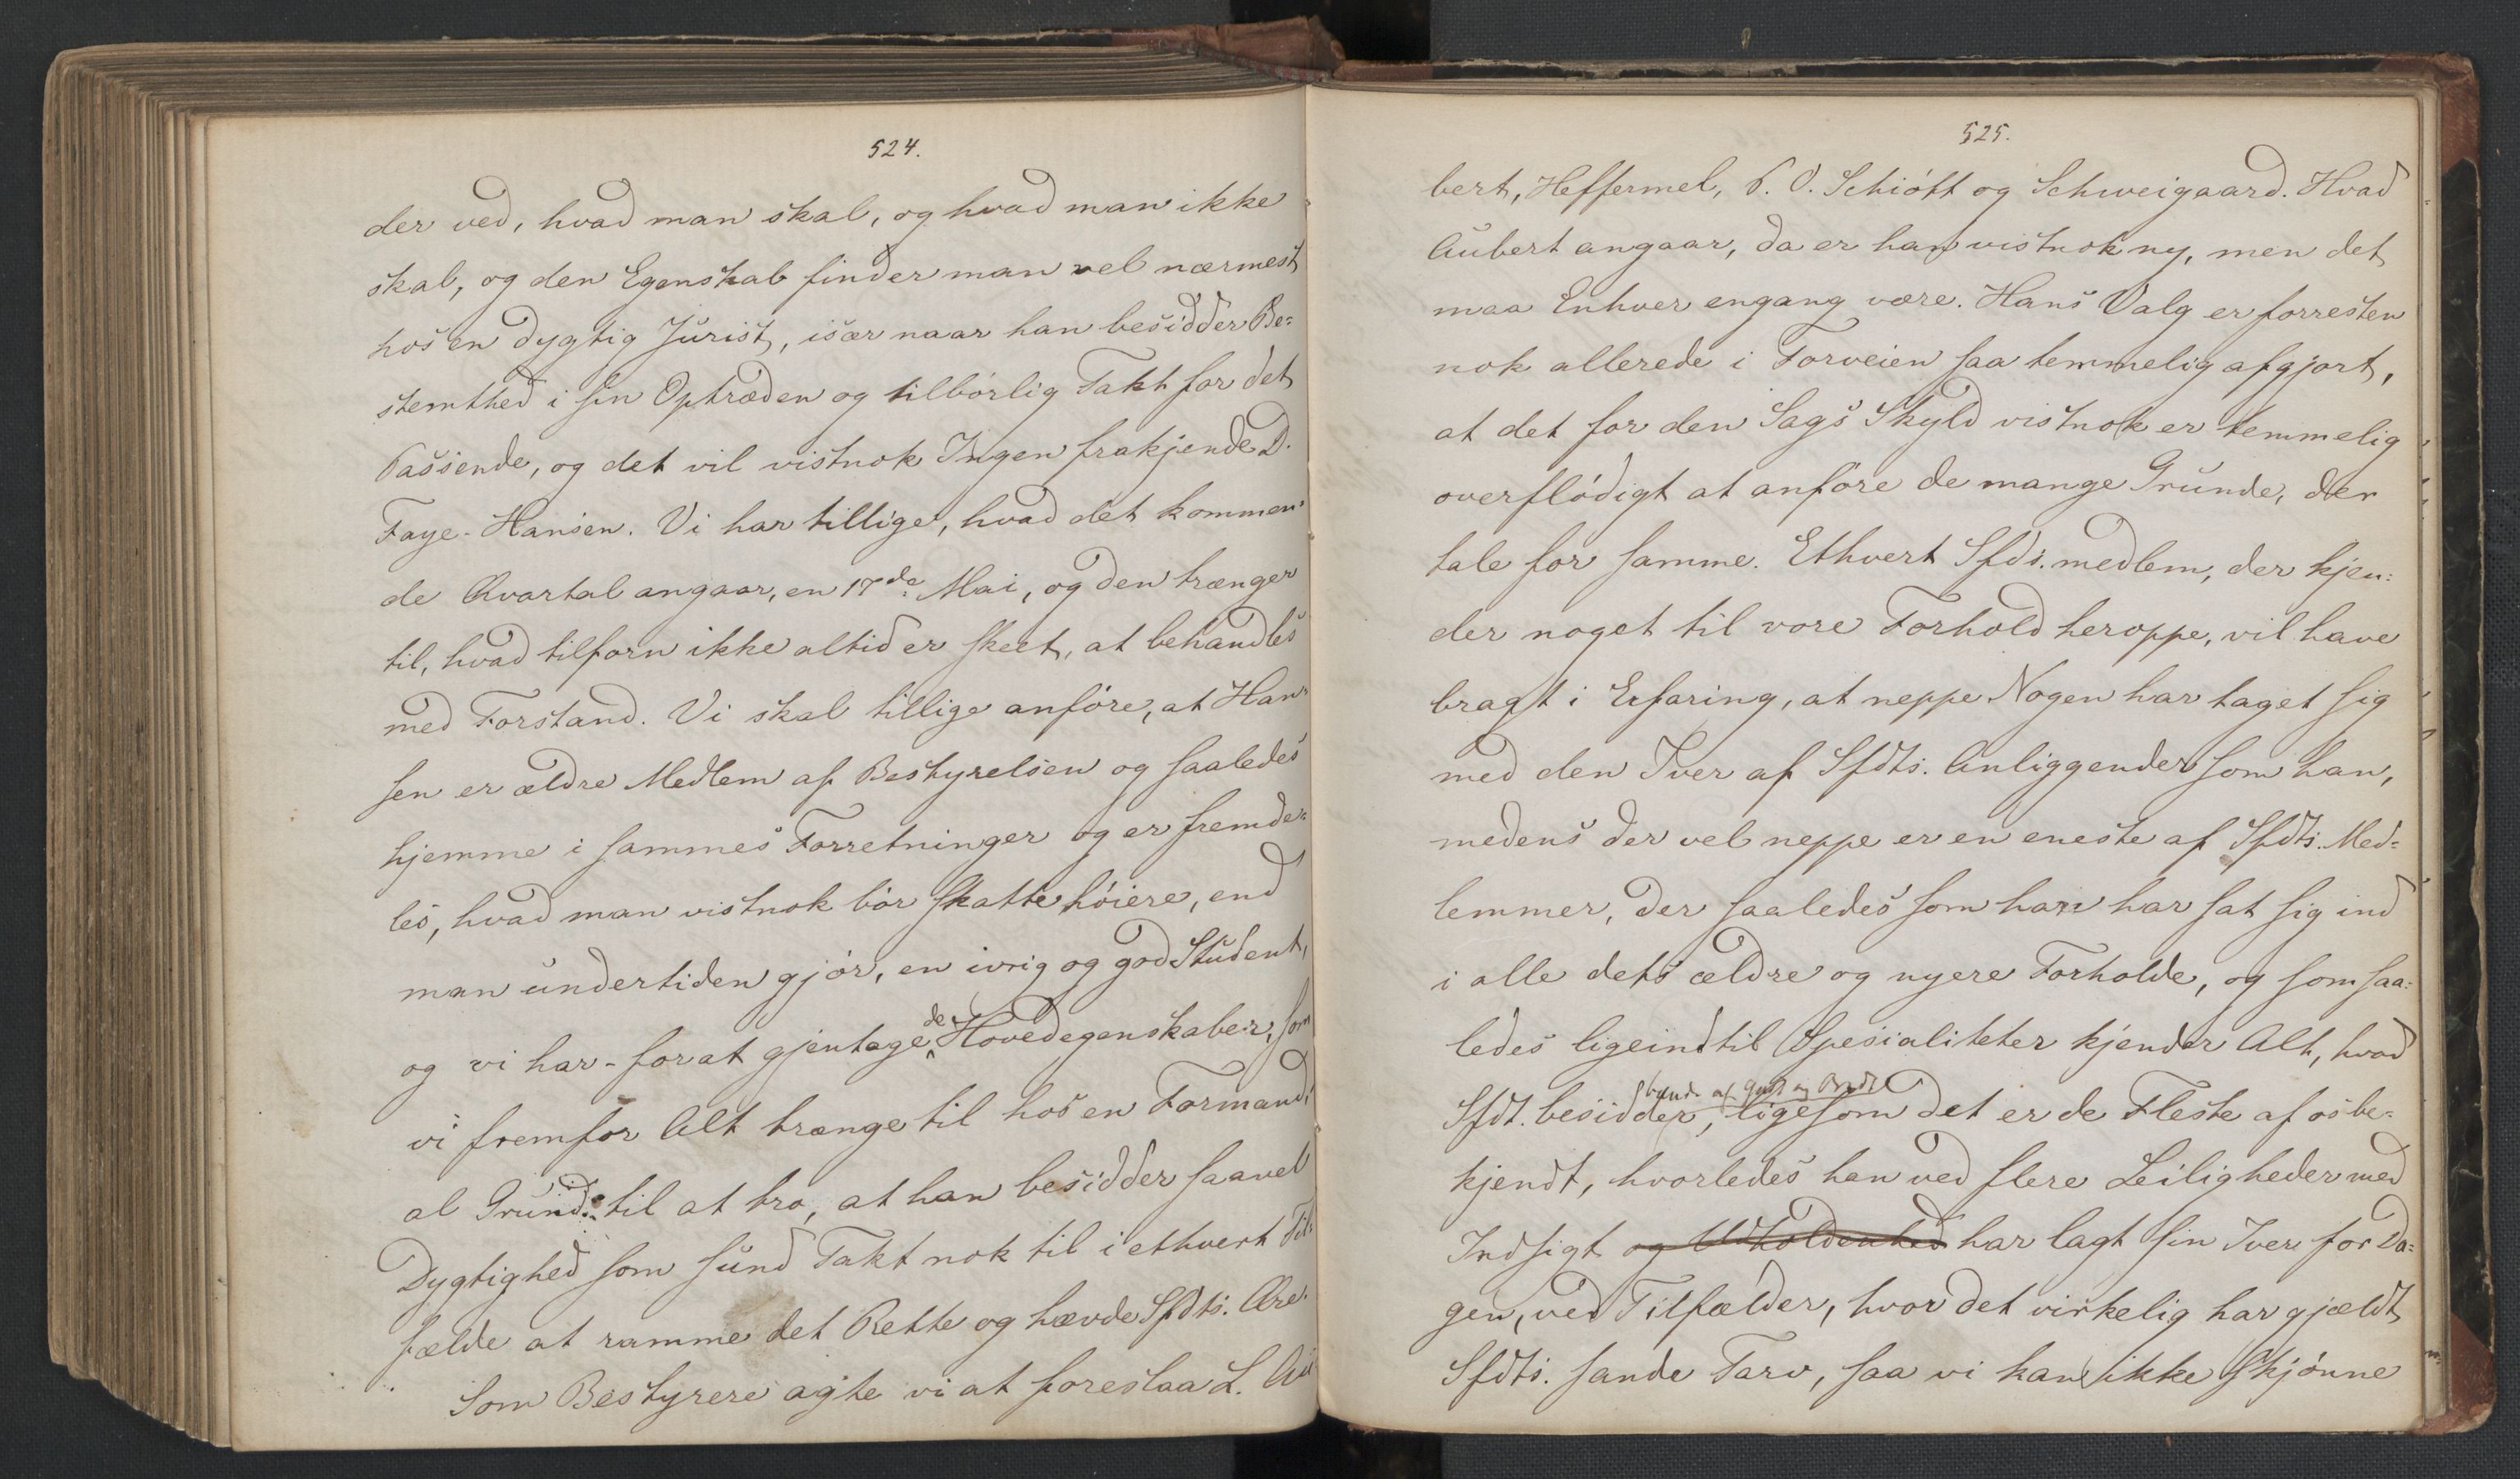 524.
der ved, hvad man skal, og hvad man ikke
skal, og den Egenskab finder man vel nærmest
hos en dygtig Jurist, især naar han besidder Be=
stemthed i sin Optræden og tilbørlig Takt for det
Passende, og det vil vistnok Ingen frakjende D.
Faye-Hansen. Vi har tillige, hvad det kommen=
de Qvartal angaar, en 17de Mai, og den trænger
til, hvad tilforn ikke altid er skeet, at behandles
med Forstand. Vi skal tillige anføre, at Han=
sen er ældre Medlem af Bestyrelsen og saaledes
hjemme i sammes Forretninger og er fremde=
les, hvad man vistnok bør skatte høiere, end
man undertiden gjør, en ivrig og god Student,
og vi har - for at gjentage de Hovedegenskaber, som
vi fremfor Alt trænge til hos en Formand,
al Grund til at tro, at han besidder saavel
Dygtighed som sund Takt nok til i ethvert Til=
fælde at ramme det Rette og hævde Sfdts. Ære.
Som Bestyrere agte vi at foreslaa L. Au
525.
bert, Heffermel, P. O. Schiøtt og Schweigaard. Hvad
Aubert angaar, da er han vistnok ny, men det
maa Enhver engang være. Hans Valg er forresten
nok allerede i Forveien saa temmelig afgjort,
at det for den Sags Skyld vistnok er temmelig
overflødigt at anføre de mange Grunde, der
tale for samme. Ethvert Sfds. medlem, der kjen=
der noget til vore Forhold heroppe, vil have
bragt i Erfaring, at neppe Nogen har taget sig
med den Iver af Sfdts. Anliggender som han,
medens der vel neppe er en eneste af Sfdts. Med=
lemmer, der saaledes som han har sat sig ind
i alle dets ældre og nyere Forholde, og som saa=
ledes ligeindtil Spesialiteter kjender Alt, hvad
af Godt og
Sfdt. besidder, ligesom det er de Fleste af os be=
kjendt, hvorledes han ved flere Leiligheder med
Indsigt og Udholdenhed har lagt sin Iver for Da=
gen, ved Tilfælder, hvor det virkelig har gjældt
Sfdts. sande Tarv, saa vi kan ikke skjønne